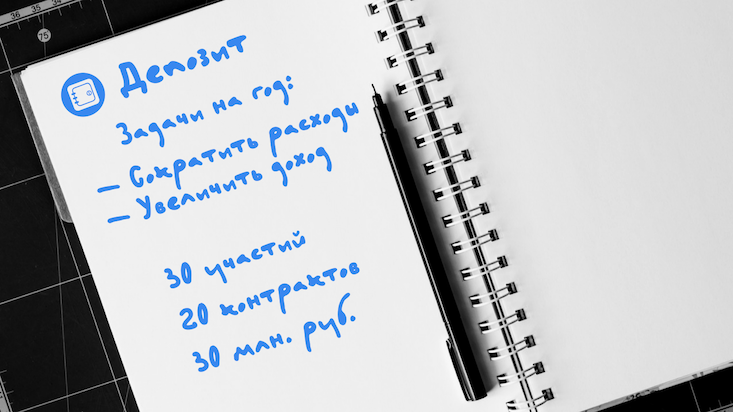 Депозит
Задачи на год:
– Сократить расходы
– Увеличить доход
30 участий
20 контрактов
30 млн. руб.
35
36
75